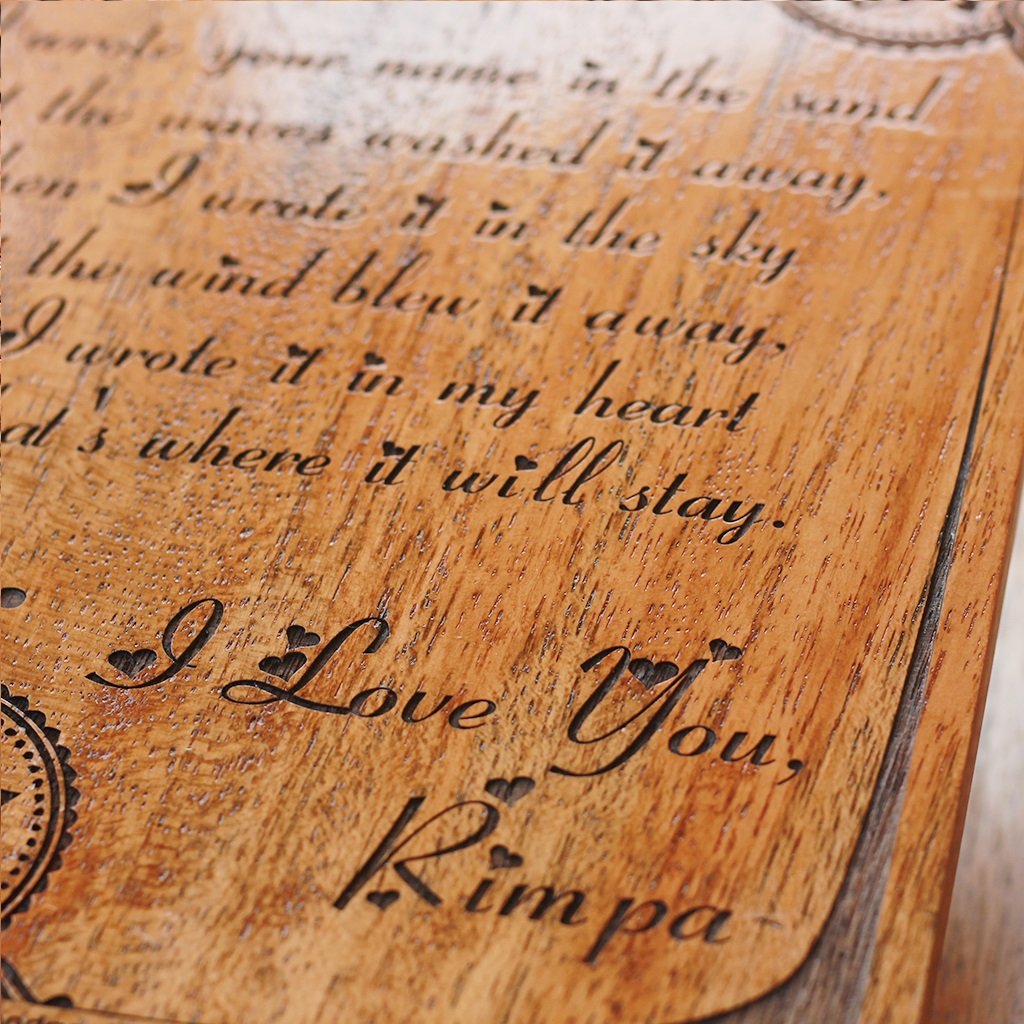 wrote your name in the sand
the waves washed it away,
I wrote it in the sky
the wind blew it away,
I wrote it in my heart
at's where it will stay.
I Love You,
Rimpa